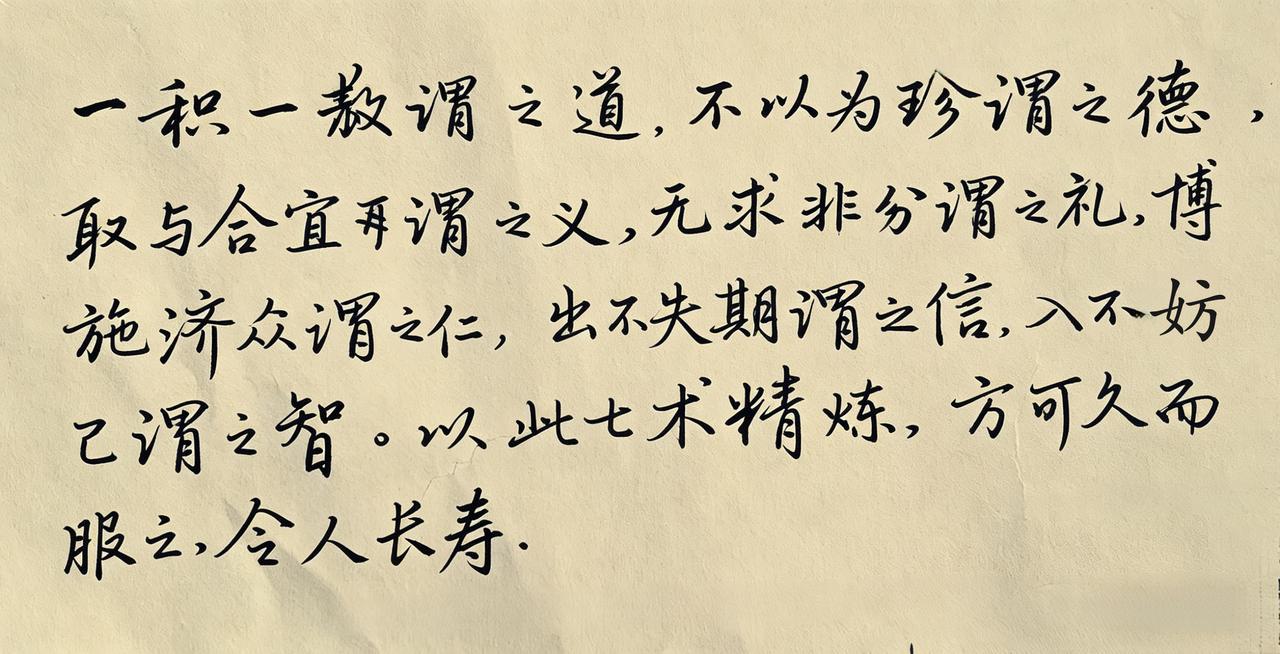 一积一散谓之道,不以为珍谓之德,
取与合宜谓之义,无求非分谓之礼,博
施济众谓之仁,出不失期谓之信,入不妨
己谓之智。以此七术精炼,方可久而
服之,令人长寿.